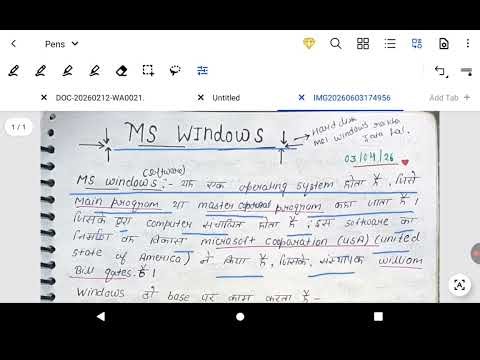 Pens
DOC-20260212-WA0021.
Untitled
IMG20260603174956
Add Tab
1/1
MS WINDOWS
Hard disk
mei windows rakha
Jata hai.
03/04/26
(Software)
MS windows :- यह एक operating system होता है, जिसे
Main program या master control program कहा जाता है।
जिसके द्वारा computer संचालित होता है। इस software का
निर्माण वह विकास microsoft cooparation (USA) (united
state of America) ने किया है, जिसके, संस्थापक william
Bill gates. है।
Windows दो base पर काम करता है -